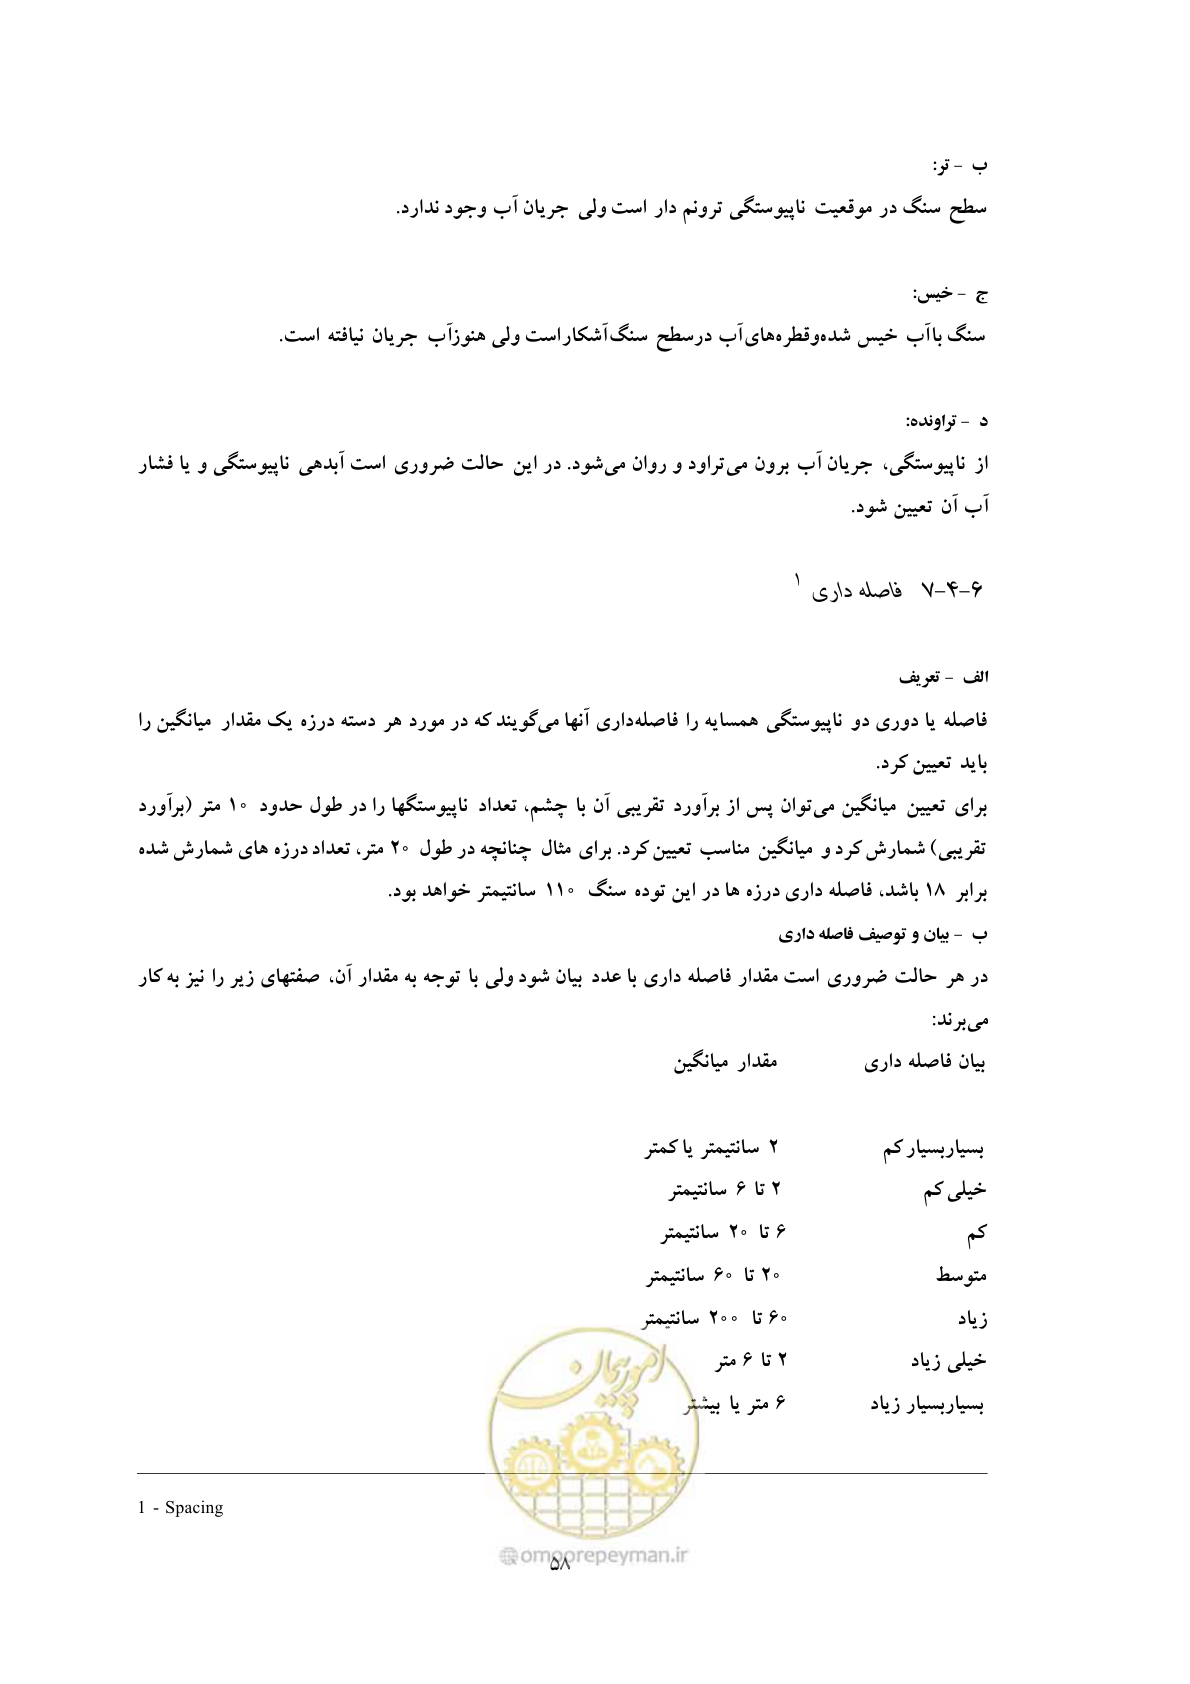 ب - تر:
سطح سنگ در موقعیت ناپیوستگی ترونم دار است ولی جریان آب وجود ندارد.
ج - خیس:
سنگ باآب خیس شده‌وقطره‌های‌آب درسطح سنگ‌آشکاراست ولی هنوزآب جریان نیافته است.
د - تراونده:
از ناپیوستگی، جریان آب برون می‌تراود و روان می‌شود. در این حالت ضروری است آبدهی ناپیوستگی و یا فشار
آب آن تعیین شود.
۷-۴-۶ فاصله داری ۱
الف - تعریف
فاصله یا دوری دو ناپیوستگی همسایه را فاصله‌داری آنها می‌گویند که در مورد هر دسته درزه یک مقدار میانگین را
باید تعیین کرد.
برای تعیین میانگین می‌توان پس از برآورد تقریبی آن با چشم، تعداد ناپیوستگها را در طول حدود ۱۰ متر (برآورد
تقریبی) شمارش کرد و میانگین مناسب تعیین کرد. برای مثال چنانچه در طول ۲۰ متر، تعداد درزه های شمارش شده
برابر ۱۸ باشد، فاصله داری درزه ها در این توده سنگ ۱۱۰ سانتیمتر خواهد بود.
ب - بیان و توصیف فاصله داری
در هر حالت ضروری است مقدار فاصله داری با عدد بیان شود ولی با توجه به مقدار آن، صفتهای زیر را نیز به کار
می‌برند:
بیان فاصله داری مقدار میانگین
بسیاربسیار کم ۲ سانتیمتر یا کمتر
خیلی کم ۲ تا ۶ سانتیمتر
کم ۶ تا ۲۰ سانتیمتر
متوسط ۲۰ تا ۶۰ سانتیمتر
زیاد ۶۰ تا ۲۰۰ سانتیمتر
خیلی زیاد ۲ تا ۶ متر
بسیاربسیار زیاد ۶ متر یا بیشتر
امور پیمان
1 - Spacing
@omoorepeyman.ir
۵۸